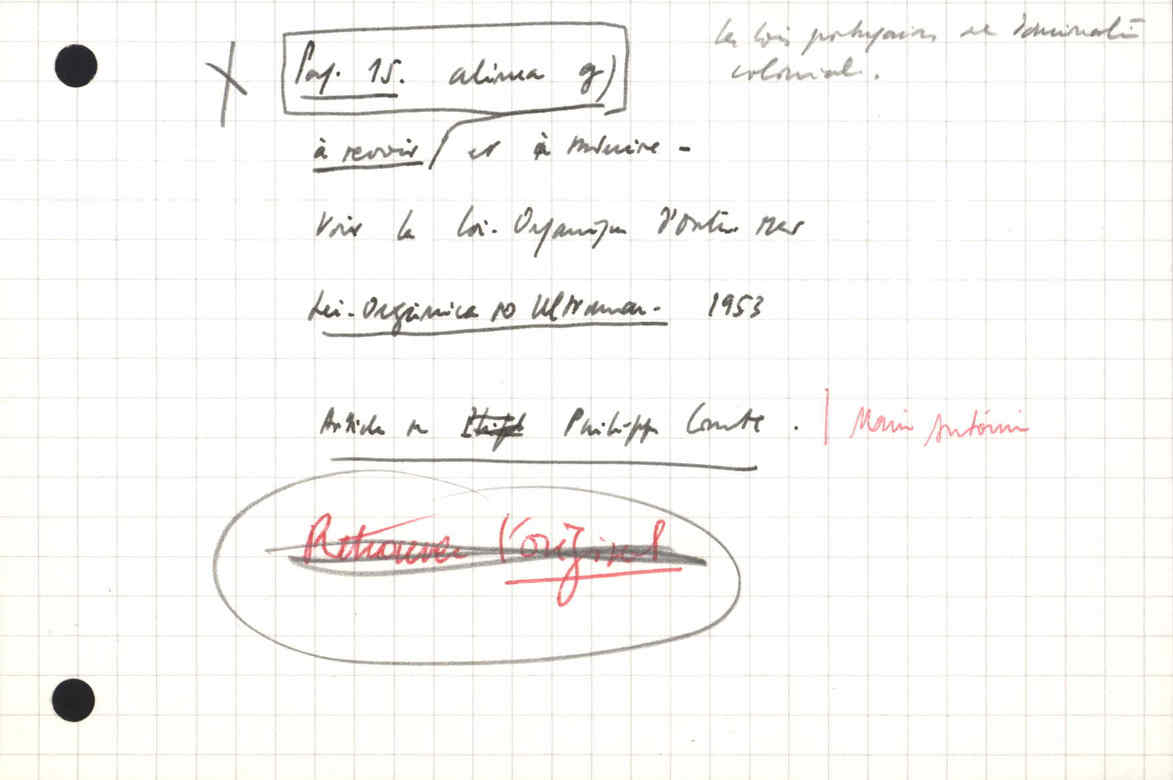 Les lois portugaises de domination
coloniale.
X Pag. 15. alinea g)
à revoir et à traduire -
Voir la Loi-Organique d'Outre Mer
Lei-Orgânica do Ultramar - 1953
Article de Philippe Comte. | Mário António
Retrouver l'original